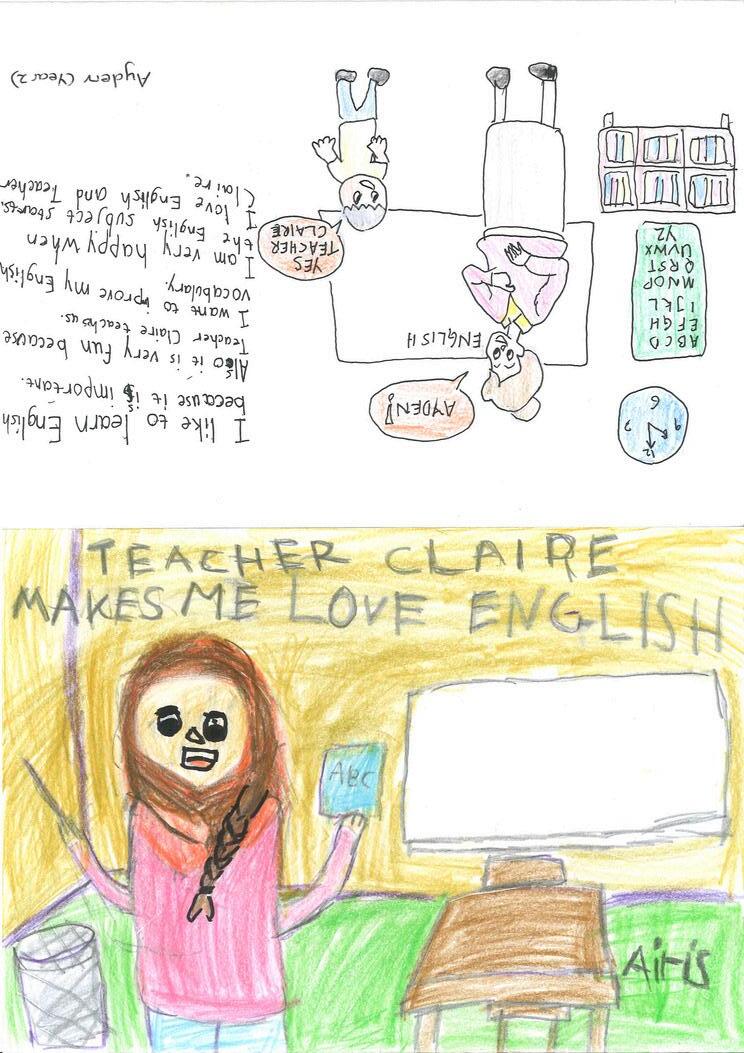 TEACHER CLAIRE
MAKES ME LOVE ENGLISH
ABC
Airis
I like to learn English
because it is important.
Also it is very fun because
Teacher Claire teachs us.
I want to iprove my English
vocabulary.
I am very happy when
the English subject starts.
I love English and Teacher
Claire.
Ayden (Year 2)
AYDEN!
ENGLISH
YES
TEACHER
CLAIRE
12
9
6
ABCD
EFGH
IJKL
MNOP
QRST
UVWX
YZ